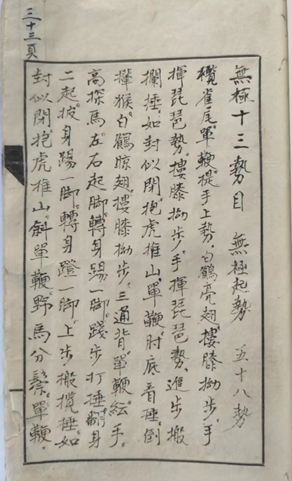 三十三頁
無極十三勢目 無極起勢 五十八勢
攬雀尾單鞭提手上勢白鶴亮翅摟膝拗步手
揮琵琶勢摟膝拗步手揮琵琶勢進步搬
攔捶如封似閉抱虎推山單鞭肘底看捶倒
攆猴白鶴晾翅摟膝拗步三通背單鞭紜手
高探馬左右起脚轉身踢一脚踐步打捶翻身
二起披身踢一脚轉身蹬一脚上步搬攬捶如
封似閉抱虎推山斜單鞭野馬分鬃單鞭